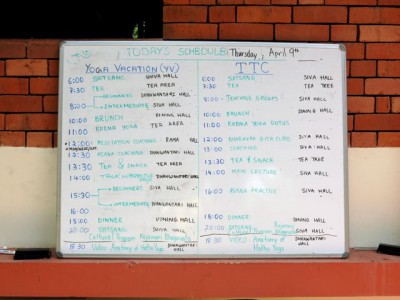 TODAY'S SCHEDULE Thursday, April 9th
YOGA VACATION (YV)
6:00 SATSANG SHIVA HALL
7:30 TEA TEA AREA
8:00 BEGINNERS DHANWANTARI HALL
INTERMEDIATE SIVA HALL
10:00 BRUNCH DINING HALL
11:00 KARMA YOGA TEA AREA
12:00 MEDITATION COACHING RAMA HALL
12:30 ASANA COACHING DHANWANTARI HALL
13:30 TEA & SNACK TEA AREA
14:00 DHANWANTARI HALL
15:30 BEGINNERS SIVA HALL
INTERMEDIATE DHANWANTARI HALL
16:00
18:00 DINNER DINING HALL
20:00 SATSANG SHIVA HALL
Cultural Program
18:30 Video Anatomy of Hatha Yoga DHANWANTARI HALL
TTC
6:00 SATSANG SIVA HALL
7:30 TEA TEA AREA
8:00 TEACHING GROUPS SIVA HALL
10:00 BRUNCH DINING HALL
11:00 KARMA YOGA DUTIES
12:00 BHAGAVAD GITA CLASS SIVA HALL
13:00 COACHING SIVA HALL
13:30 TEA & SNACK TEA AREA
14:00 MAIN LECTURE SIVA HALL
16:00 ASANA PRACTICE SIVA HALL
18:00 DINNER DINING HALL
20:00 SATSANG SIVA HALL
Cultural Program
18:30 VIDEO Anatomy of Hatha Yoga DHANWANTARI HALL